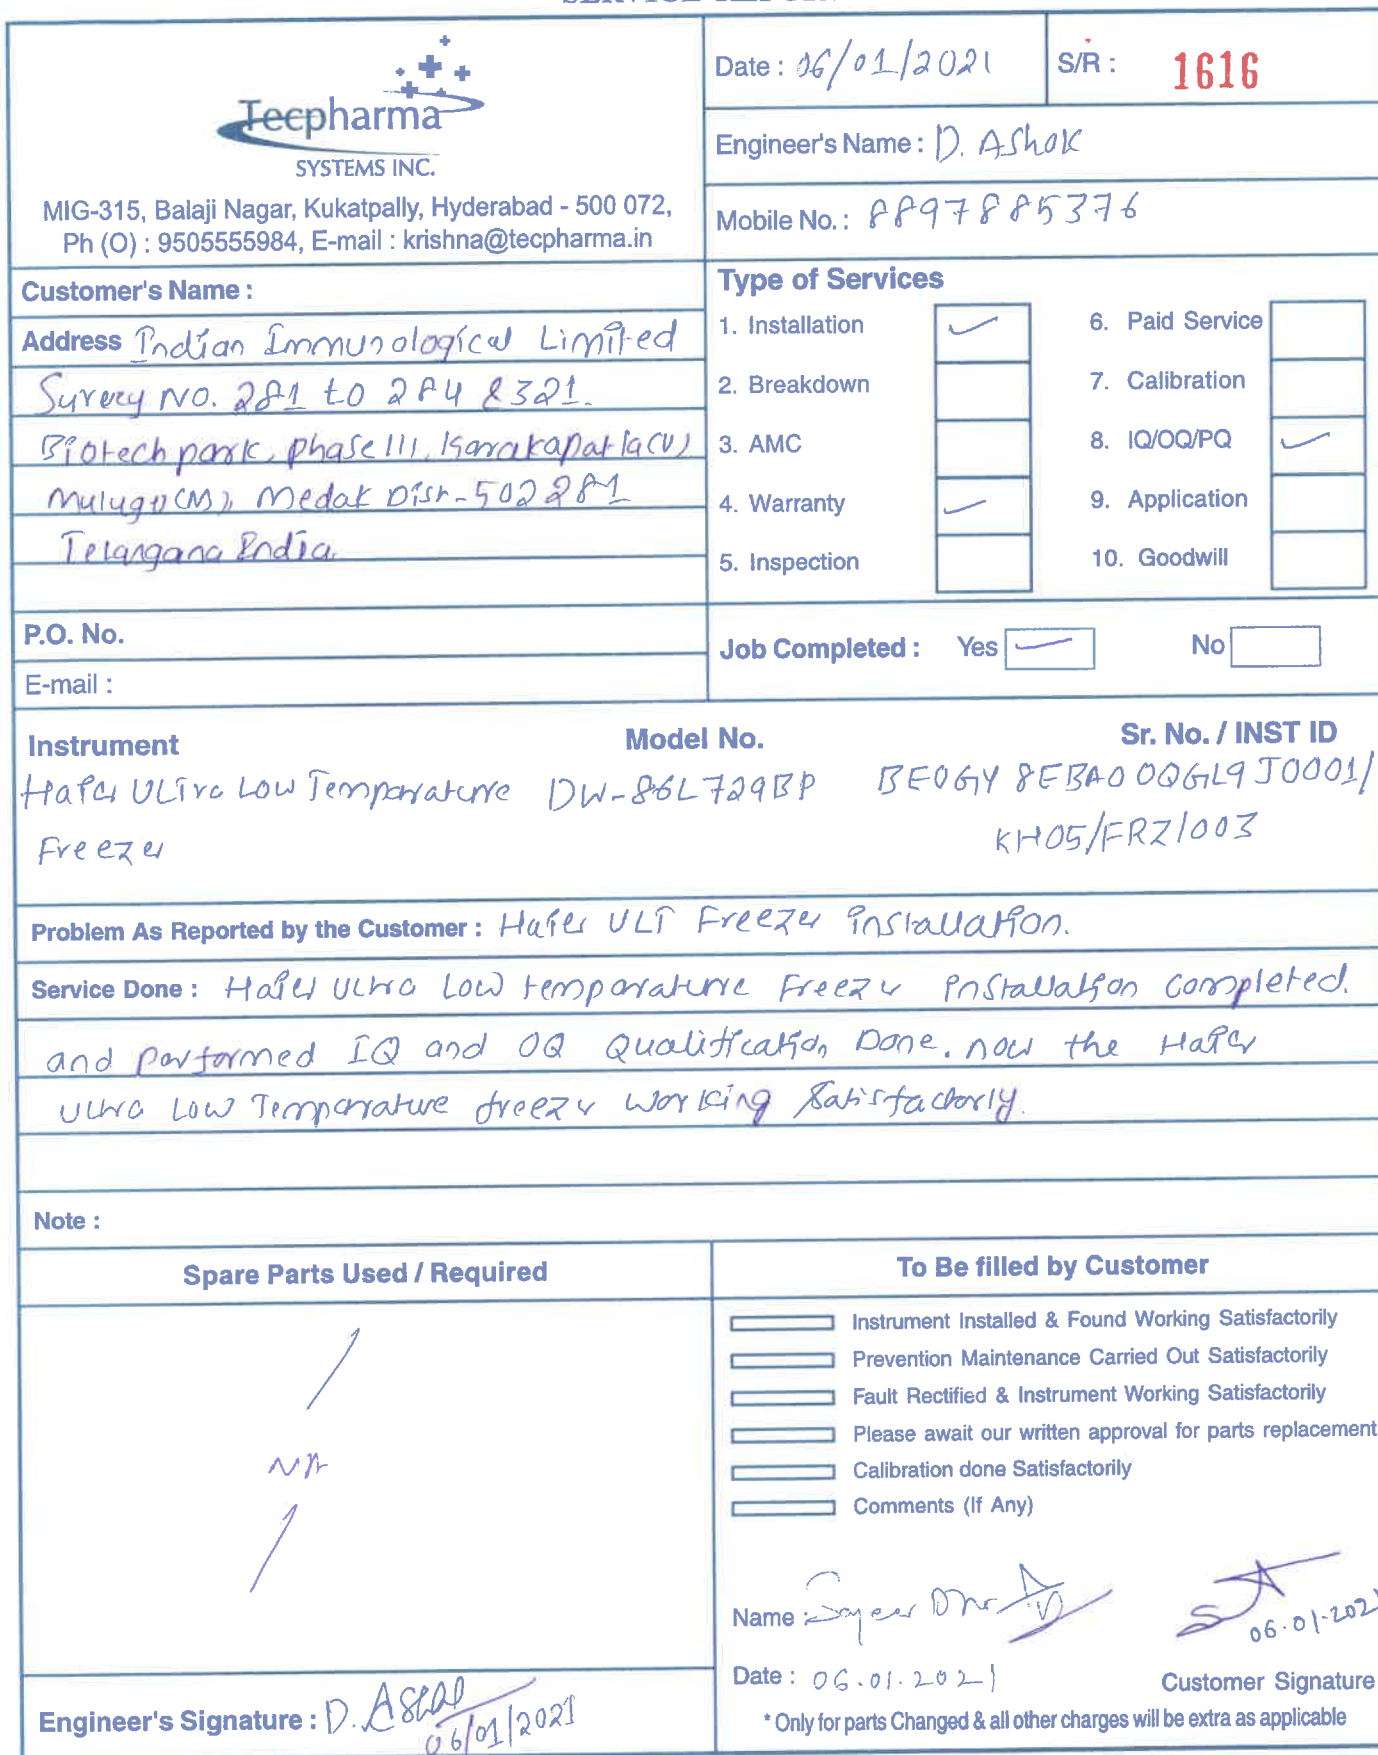 Tecpharma
SYSTEMS INC.
MIG-315, Balaji Nagar, Kukatpally, Hyderabad - 500 072,
Ph (O) : 9505555984, E-mail : krishna@tecpharma.in
Date : 06/01/2021
S/R : 1616
Engineer's Name : D. AShok
Mobile No. : 8897885376
Customer's Name :
Address Indian Immunological Limited
Survey No. 281 to 284 & 321.
Biotech park, phase III, Karakapatla (V)
Mulugu (M), Medak Dist-502281
Telangana India.
P.O. No.
E-mail :
Type of Services
1. Installation ✓ 6. Paid Service
2. Breakdown 7. Calibration
3. AMC 8. IQ/OQ/PQ ✓
4. Warranty ✓ 9. Application
5. Inspection 10. Goodwill
Job Completed : Yes ✓ No
Instrument Model No. Sr. No. / INST ID
Haier ULtra Low Temperature DW-86L729BP BE0GY8EBA00QGL9J0001/
Freezer KH05/FRZ/003
Problem As Reported by the Customer : Haier ULT Freezer installation.
Service Done : Haier Ultra Low temperature Freezer installation completed.
and performed IQ and OQ Qualification Done. now the Haier
Ultra Low Temperature freezer working Satisfactorly.
Note :
Spare Parts Used / Required
NA
To Be filled by Customer
Instrument Installed & Found Working Satisfactorily
Prevention Maintenance Carried Out Satisfactorily
Fault Rectified & Instrument Working Satisfactorily
Please await our written approval for parts replacement
Calibration done Satisfactorily
Comments (If Any)
Name :
06.01.202
Date : 06.01.2021
Customer Signature
* Only for parts Changed & all other charges will be extra as applicable
Engineer's Signature : D. Ashok
06/01/2021